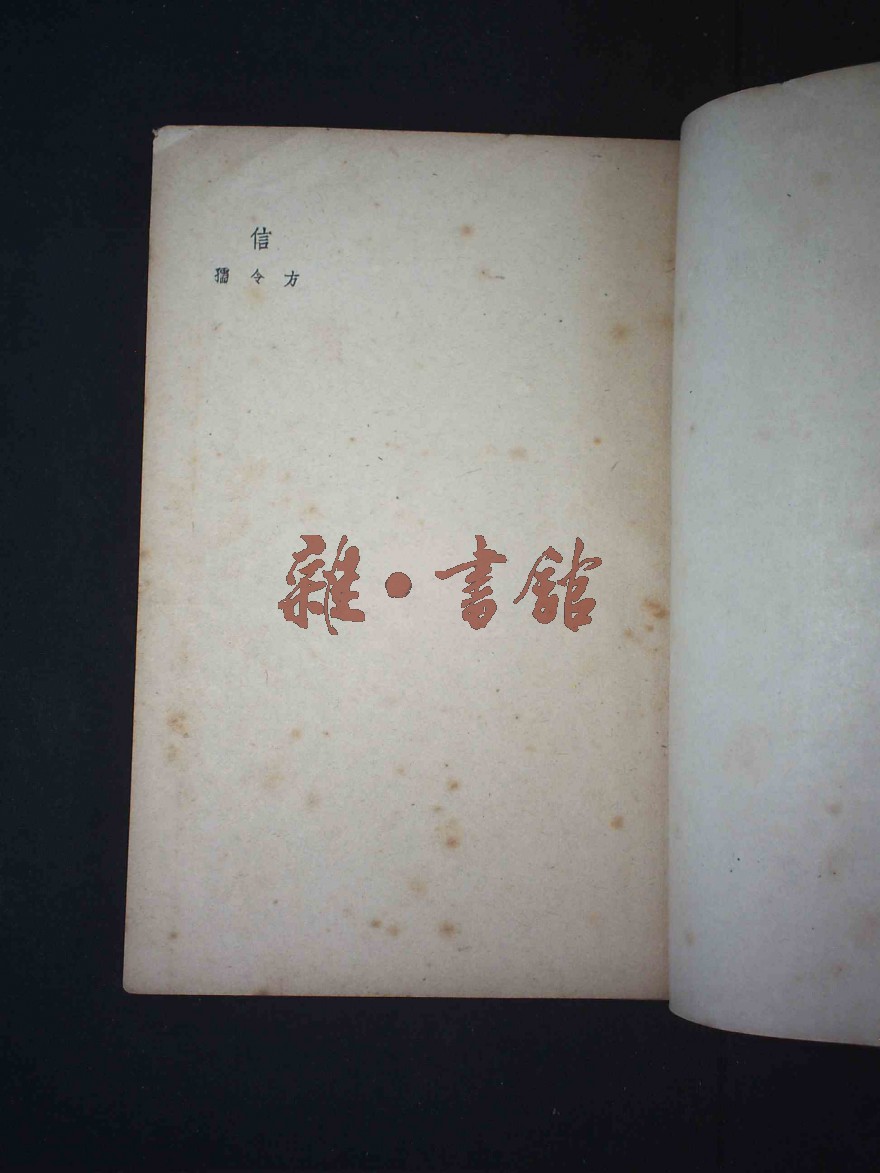 信
方令孺
雜·書館